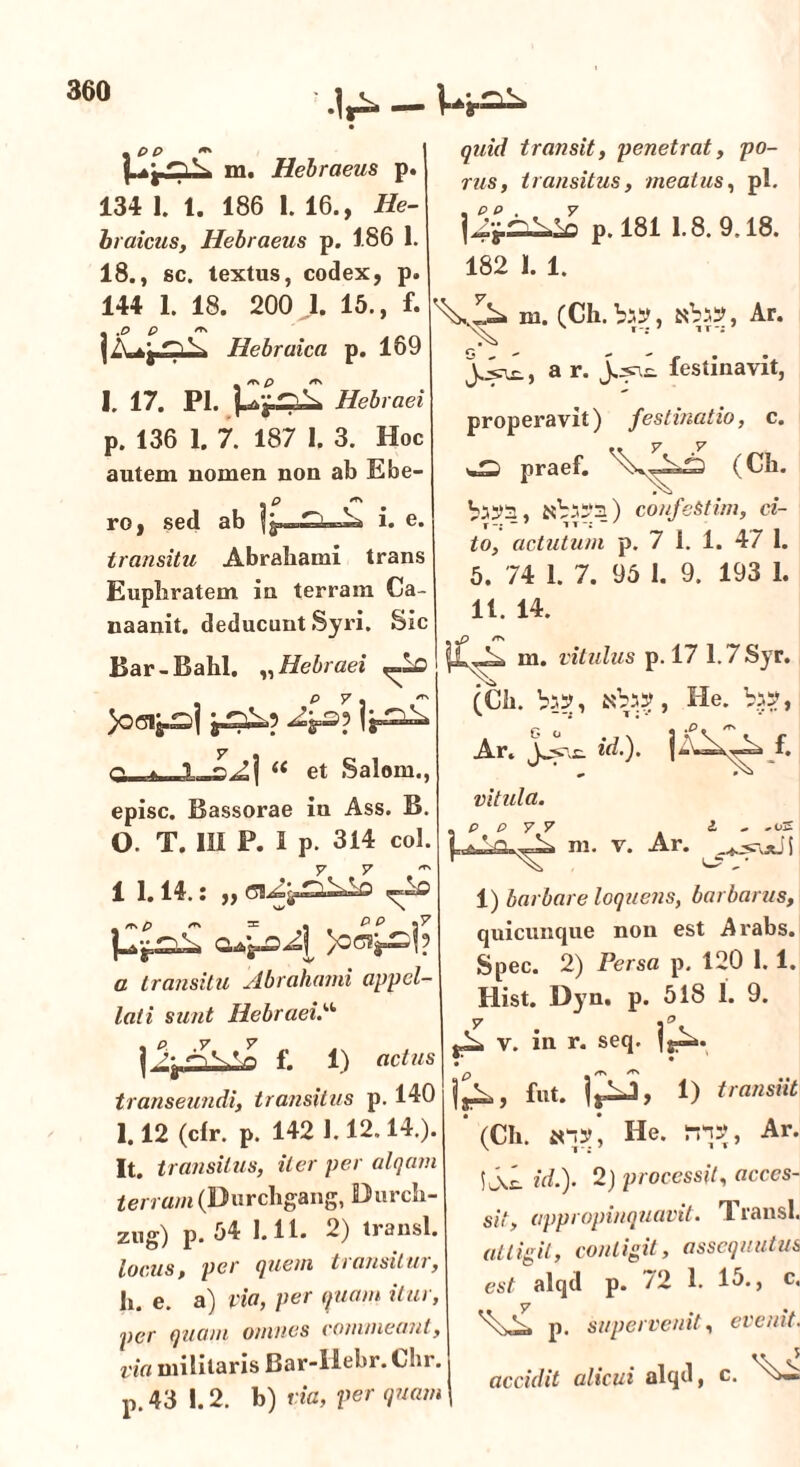 360
ܥܒܪܝܐ — ܥܕܐ.
ܥܒܪܝܐ m. Hebraeus p.
134 l. 1. 186 l. 16., He-
braicus, Hebraeus p. 186 l.
18., sc. textus, codex, p.
144 l. 18. 200 l. 15., f.
ܥܒܪܝܬܐ Hebraica p. 169
l. 17. Pl. ܥܒܪܝܐ Hebraei
p. 136 l. 7. 187 l. 3. Hoc
autem nomen non ab Ebe-
ro, sed ab ܥܒܪܐ i. e.
transitu Abrahami trans
Euphratem in terram Ca-
naanit. deducunt Syri. Sic
Bar-Bahl. „Hebraei ܡܢ
ܥܒܪܐ ܕܦܪܬ ܕܥܒܪ ܐܒܪܗܡ
ܐܬܟܢܝܘ “ et Salom.,
episc. Bassorae in Ass. B.
O. T. III P. I p. 314 col.
1 l. 14.: „ ܡܢ ܡܥܒܪܬܗ
ܕܐܒܪܗܡ ܐܬܩܪܝܘ ܥܒܪܝܐ
a transitu Abrahami appel-
lati sunt Hebraei.“
ܡܥܒܪܬܐ f. 1) actus
transeundi, transitus p. 140
l. 12 (cfr. p. 142 l. 12. 14.).
It. transitus, iter per alqam
terram (Durchgang, Durch-
zug) p. 54 l. 11. 2) transl.
locus, per quem transitur,
h. e. a) via, per quam itur,
per quam omnes commeant,
via militaris Bar-Hebr. Chr.
p. 43 l. 2. b) via, per quam
quid transit, penetrat, po-
rus, transitus, meatus, pl.
ܡܥܒܪܬܐ p. 181 l. 8. 9. 18.
182 l. 1.
ܥܓܠ m. (Ch. עֲגַל, עֲגָלָא, Ar.
عَجَلٌ, a r. عَجِلَ festinavit,
properavit) festinatio, c.
ܒ praef. ܒܥܓܠ (Ch.
בַּעֲגַל, בַּעֲגָלָא) confestim, ci-
to, actutum p. 7 l. 1. 47 l.
5. 74 l. 7. 95 l. 9. 193 l.
11. 14.
ܥܓܠܐ m. vitulus p. 17 l. 7 Syr.
(Ch. עֲגַל, עֶגְלָא, He. עֵגֶל,
Ar. عِجْلٌ id.). ܥܓܠܬܐ f.
vitula.
ܥܓܡܝܐ m. v. Ar. الأعجمي
1) barbare loquens, barbarus,
quicunque non est Arabs.
Spec. 2) Persa p. 120 l. 1.
Hist. Dyn. p. 518 l. 9.
ܥܕ v. in r. seq. ܥܕܐ.
ܥܕܐ, fut. ܢܥܕܐ, 1) transiit
(Ch. עֲדָא, He. עָדָה, Ar.
عَدَا id.). 2) processit, acces-
sit, appropinquavit. Transl.
attigit, contigit, assequutus
est alqd p. 72 l. 15., c.
ܥܠ p. supervenit, evenit.
accidit alicui alqd, c. ܥܠ